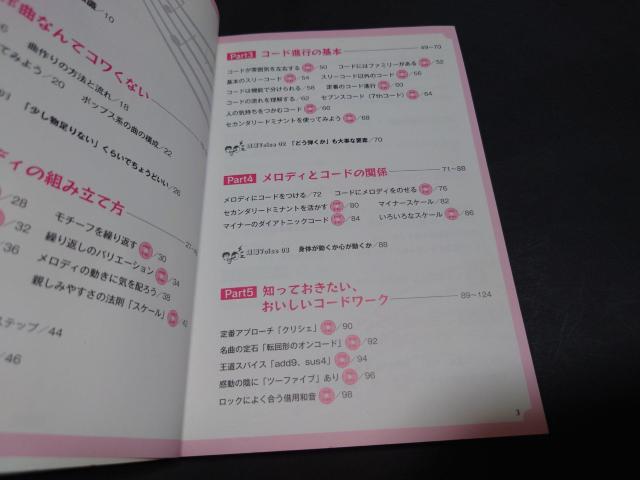 /10
曲なんてコワくない
曲作りの方法と流れ/18
てみよう/20
ポップス系の曲の構成/22
「少し物足りない」くらいでちょうどいい/26
ディの組み立て方
/28
モチーフを繰り返す/30
/32
繰り返しのバリエーション/34
/36
メロディの動きに気を配ろう/38
親しみやすさの法則「スケール」
ステップ/44
/46
Part3 コード進行の基本 49~70
コードが雰囲気を左右する/50 コードにはファミリーがある/52
基本のスリーコード/54 スリーコード以外のコード/56
コードは機能で分けられる/58 定番のコード進行/60
コードの流れを理解する/62 セブンスコード(7thコード)/64
人の気持ちをつかむコード/66
セカンダリードミナントを使ってみよう/68
02 「どう弾くか」も大事な要素/70
Part4 メロディとコードの関係 71~88
メロディにコードをつける/72 コードにメロディをのせる/76
セカンダリードミナントを活かす/80 マイナースケール/82
マイナーのダイアトニックコード/84 いろいろなスケール/86
03 身体が動くか心が動くか/88
Part5 知っておきたい、
おいしいコードワーク 89~124
定番アプローチ「クリシェ」/90
名曲の定石「転回形のオンコード」/92
王道スパイス「add9、sus4」/94
感動の陰に「ツーファイブ」あり/96
ロックによく合う借用和音/98
3